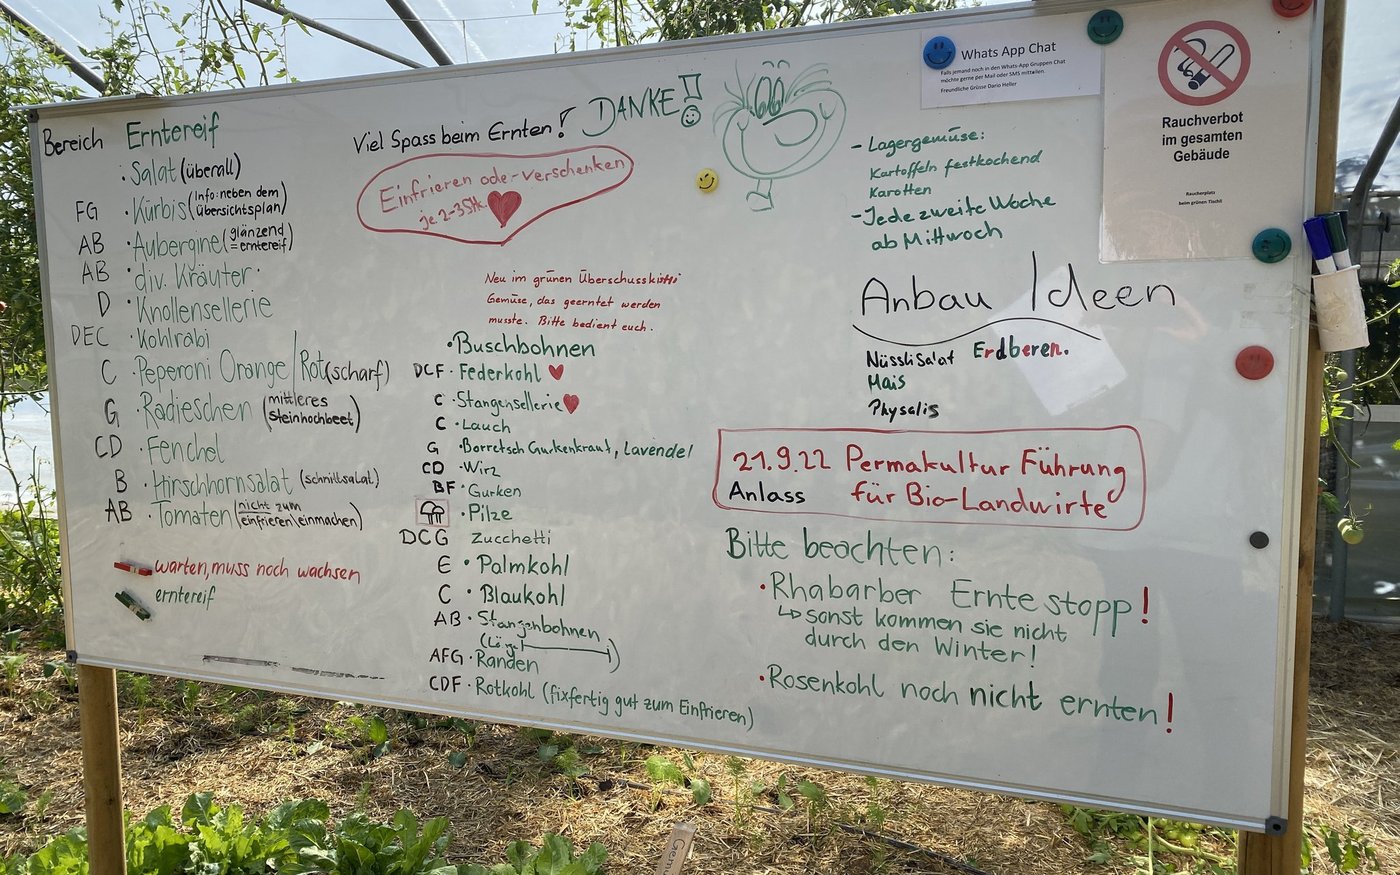 Bereich Erntereif
• Salat (überall)
FG • Kürbis (Info: neben dem übersichtsplan)
AB • Aubergine (glänzend = erntereif)
AB • div. Kräuter
D • Knollensellerie
DEC • Kohlrabi
C • Peperoni Orange / Rot (scharf)
G • Radieschen (mittleres Steinhochbeet)
CD • Fenchel
B • Hirschhornsalat (schnittsalat)
AB • Tomaten (nicht zum einfrieren\einmachen)
warten, muss noch wachsen
erntereif
Viel Spass beim Ernten! DANKE!
Einfrieren oder verschenken
je 2-3Stk
Neu im grünen Überschusskistli
Gemüse, das geerntet werden
musste. Bitte bedient euch.
• Buschbohnen
DCF • Federkohl
C • Stangensellerie
C • Lauch
G • Borretsch Gurkenkraut, Lavendel
CD • Wirz
BF • Gurken
• Pilze
DCG Zucchetti
E • Palmkohl
C • Blaukohl
AB • Stangenbohnen
AFG • Randen
CDF • Rotkohl (fixfertig gut zum Einfrieren)
Whats App Chat
Falls jemand noch in den Whats-App Gruppen Chat
möchte gerne per Mail oder SMS mitteilen.
Freundliche Grüsse Dario Heller
Rauchverbot
im gesamten
Gebäude
Raucherplatz
beim grünen Tischli
- Lagergemüse:
Kartoffeln festkochend
Karotten
- Jede zweite Woche
ab Mittwoch
Anbau Ideen
Nüsslisalat Erdberen.
Mais
Physalis
21.9.22 Permakultur Führung
Anlass für Bio-Landwirte
Bitte beachten:
• Rhabarber Ernte stopp!
↳ sonst kommen sie nicht
durch den Winter!
• Rosenkohl noch nicht ernten!